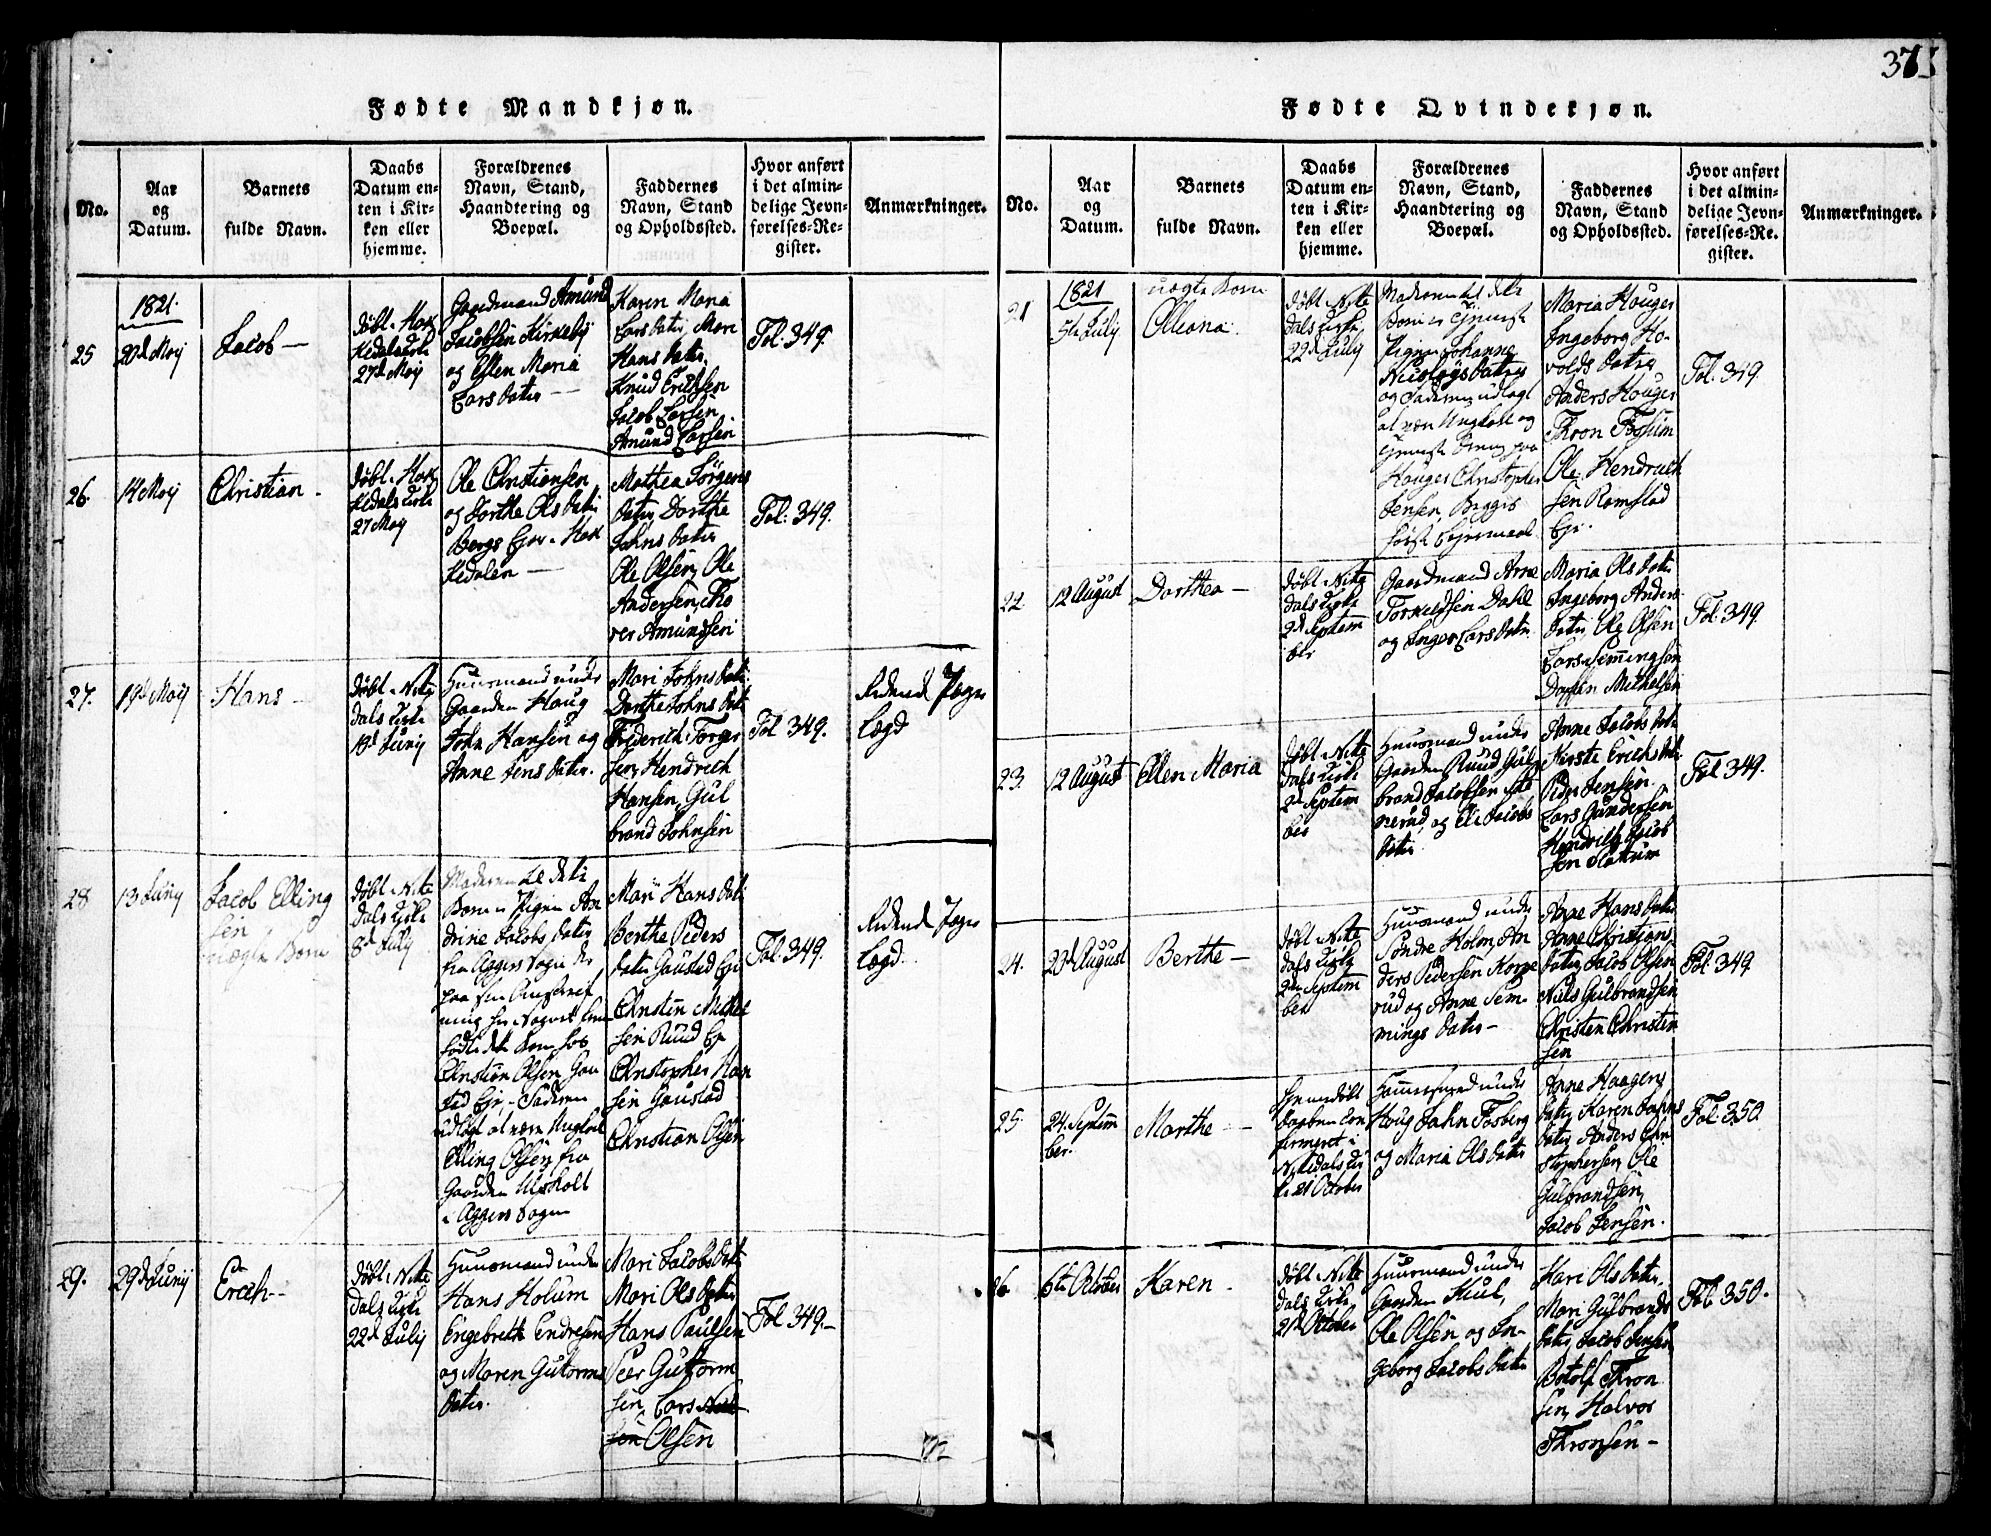 37
Fødte Mandkjøn.
No.
Aar
og
Datum.
Barnets
fulde Navn.
Daabs
Datum en-
ten i Kir-
ken eller
hjemme.
Forældrenes
Navn, Stand,
Haandtering og
Boepæl.
Faddernes
Navn, Stand
og Opholdssted.
Hvor anført
i det almin-
delige Jevn-
førelses-Re-
gister.
Anmærkninger.
25
1821.
20d Maij
Jacob —
døbt i Hak
kedals
27d Maij
Gaardmand Amund
Jacobsen Kirkebÿ
og Ellen Maria
Lars datter —
Karen Maria
Lars datter, Mari
Hans datter
Knud Erichsen
Jacob Larsen
Amund Larsen
Fol. 349.
26.
14 Maij
Christian -
døbt i Hak
kedals
27 Maij
Ole Christiansen
og Dorthe Ols datter
Bergs Eier i Hak
kedalen —
Mathea Jørgens
datter Dorthe
Johns datter
Ole Olsen, Ole
Andersen, Tho
rer Amundsen
Fol: 349.
27.
19d Maij
Hans -
døbt i Nite
dals
19d Junij
Huusmand under
Gaarden Haug
John Hansen og
Anne Jens datter.
Mari Johns datter
Dorthe Johns datter
Friderich Torger
sen, Hendrich
Hansen, Gul
brand Johnsen
Fol 349.
Lægd
28
13 Junij
Jacob Elling
sen
uægte Barn
døbt i Nite
dals
8d Julij
Moderen til dette
Barn er Pigen An
drine Jacobs datter
fra Aggers Sogn der
paa sin
fødte dette Barn hos
Christian Olsen Gau
stad Eje, - Faderen
udlagt at være Ungkarl
Elling Olsen fra
Gaarden Ulsholt
i Aggers Sogn
Mari Hans datter
Berthe Peders
datter Gausted Eje
Christen Mikkel
sen Ruud Eje
Christopher Han
sen Gaustad
Christian Olsen
Fol. 349.
Lægd.
29.
29d Junij
Erich -
døbt i Nite
dals
22d Julij
Huusmand under
Hans Holum
Engebreth Endresen
og Maren Gutorms
datter.
Mari Jacobs datter
Mari Ols datter
Hans Paulsen
Peer Gutorm
sen, Lars
sen Olsen
Fol 349.—
Fødte Qvindekjøn.
No.
Aar
og
Datum.
Barnets
fulde Navn.
Daabs
Datum en-
ten i Kir-
ken eller
hjemme.
Forældrenes
Navn, Stand,
Haandtering og
Boepæl.
Faddernes
Navn, Stand
og Opholdssted.
Hvor anført
i det almin-
delige Jevn-
førelses-Re-
gister.
Anmærkninger.
21
1821
5te Julij
uægte Barn
Olleana.
døbt i Nite
dals Kirke
22d Julij
Moderen til dette
Barn er
Pigen Johanne
Nicolays datter
og Faderen udlagt
at være Ungkarl og
Houger Christopher
Jensen
Maria Houger
Ingeborg Ho-
volds datter
Anders Houger
Thron Fossum
Ole Hendrich
sen Ramstad
Eje.
Fol. 349.
22.
12 August
Dorthea —
døbt i Nite
dals Kirke
2d Septem
ber
Gaardmand Arne
Torkildsen Dahl
og Inger Lars datter
Maria Ols datter
Ingeborg Anders
datter, Ole Olsen
Lars Semmingsen
Mickelsen
Fol. 349.
23.
12 August
Ellen Maria
døbt i Nite
dals Kirke
2d Septem
ber
Huusmand under
Gaarden Ruud Gul
brand Jacobsen
og Eli Jacobs
datter
Anne Jacobs datter
Kirsti Erichs datter
Peder Jensen.
Lars Gundersen
Hendrich Jacob
sen Slattum
Fol 349.
24.
20d August
Berthe —
døbt i Nite
dals Kirke
2den Septem
ber
Huusmand under
Søndre Holm, An
ders Pedersen
og Anne Sem-
mings datter —
Anne Hans datter
Anne Christians
datter, Jacob Olsen
Niels Gulbrandsen
Christen Christen
sen
Fol 349.
25.
24. Septem
ber.
Marthe —
hjemmedøbt
Daaben con
firmeret i
Nitedals Kir
ke 21 October
Huusmand under
Houg John Fosberg
og Maria Ols datter
Anne Haagens
datter, Karen Johns
datter, Anders Chri
stophersen, Ole
Gulbrandsen,
Jacob Jensen.
Fol. 350.
26
6te October
Karen -
døbt i Nite
dals Kirke
21d October
Huusmand under
Gaarden Kiul,
Ole Olsen og In-
geborg Jacobs datter
Kari Ols datter
Mari Gulbrands
datter, Jacob Jensen
Botolf Thron
sen, Halvor
Thronsen —
Fol 350.